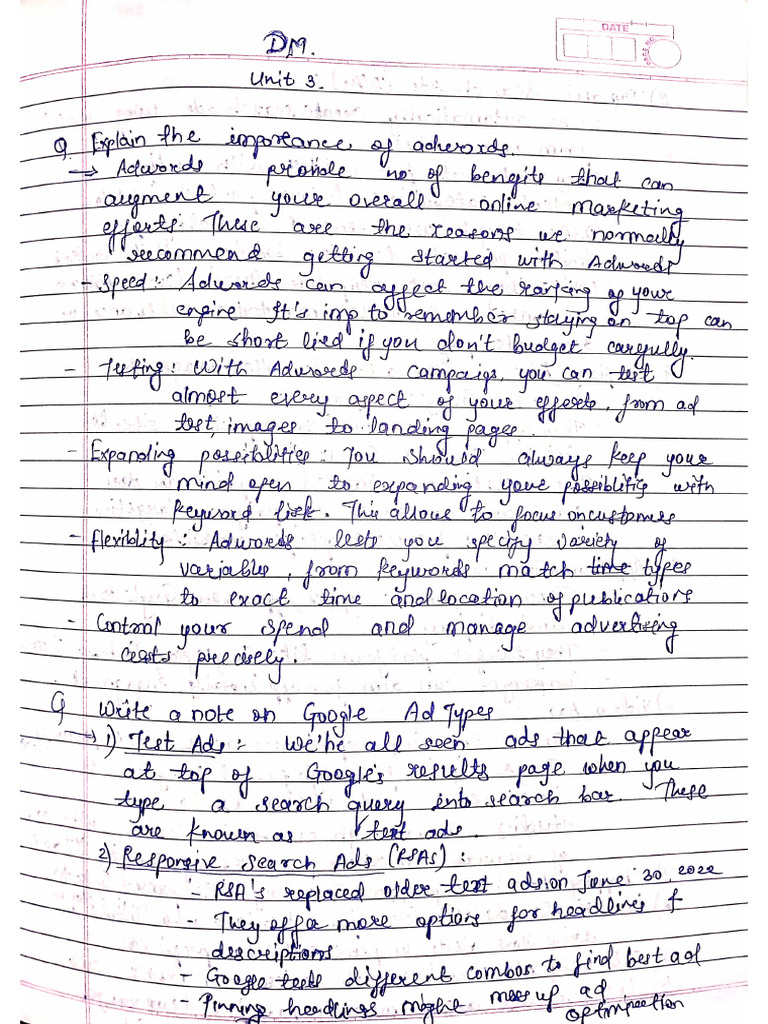 DATE
PAGE NO.
DM.
Unit 3.
Q Explain the importance of adwords.
→ Adwords: provide no of benefits that can
augment your overall online marketing
efforts. These are the reasons we normally
recommend getting started with Adwords
- Speed: Adwords can affect the ranking of your
engine It's imp to remember staying on top can
be short lied if you don't budget carefully.
- Testing: With Adwords campaign, you can test
almost every aspect of your efforts, from ad
test, images to landing pages.
- Expanding possiblities: You should always keep your
mind open to expanding your possiblitis with
keyword list. This allows to focus on customers
- flexiblity: Adwords lests you specify variety of
variables, from keywords match time types
to exact time and location of publications
- Control your spend and manage advertising
costs precisely.
Q Write a note on Google Ad Types
→ 1) Test Ads: We've all seen ads that appear
at top of Google's results page when you
type a search query into search bar. These
are known as text ads.
2) Responsive Search Ads (RSAs):
- RSA's replaced older text ads on June 30, 2022
- They offer more options for headlines &
descriptions
- Google tests different combos to find best ad
- Pinning headlines might mess up ad
optimization